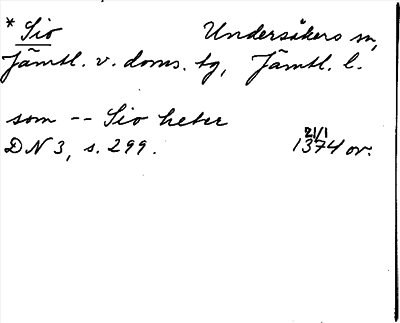 * Sio Undersåkers sn,
Jämtl. v. doms. tg, Jämtl. l.
som -- Sio heter
DN 3, s. 299. 21/1 1374 or.